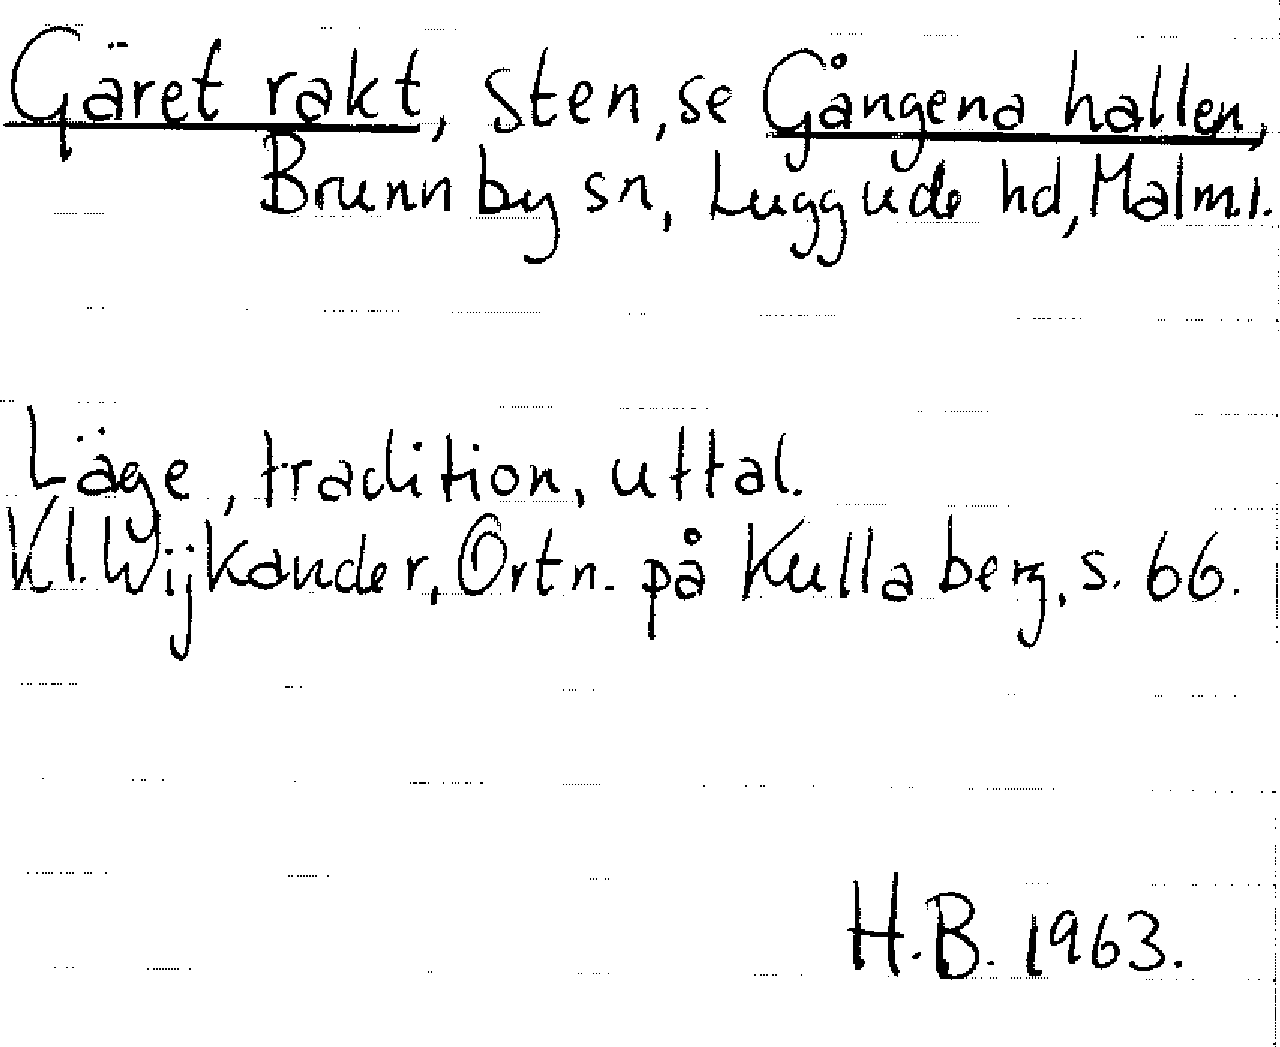 Gäret rakt, sten, se Gångena hallen,
Brunnby sn, Luggude hd, Malm.l.
Läge, tradition, uttal.
Kl. Wijkander, Ortn. på Kullaberg, s. 66.
H.B. 1963.